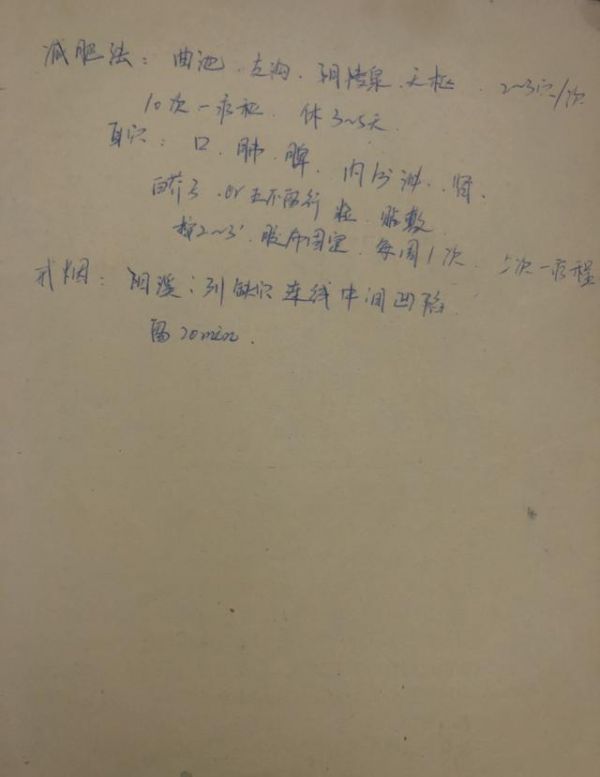 减肥法：曲池、支沟、阴陵泉、天枢、2~3穴/次
10次一疗程 休3~5天
耳穴：口、肺、脾、内分泌、肾、
白芥子、or王不留行 粒 贴敷
按2~3' 胶布固定、每周1次、5次一疗程
戒烟：阳溪；列缺穴连线中间凹陷
留20min.